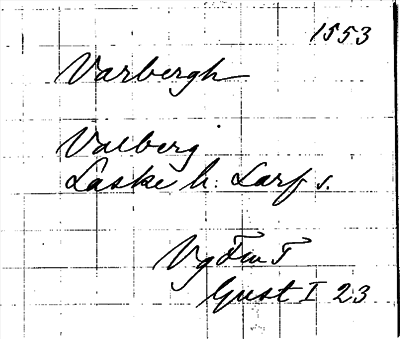 1553
Varbergh
Valberg
Laske h. Larf s.
Vg Fm T
Gust I 23